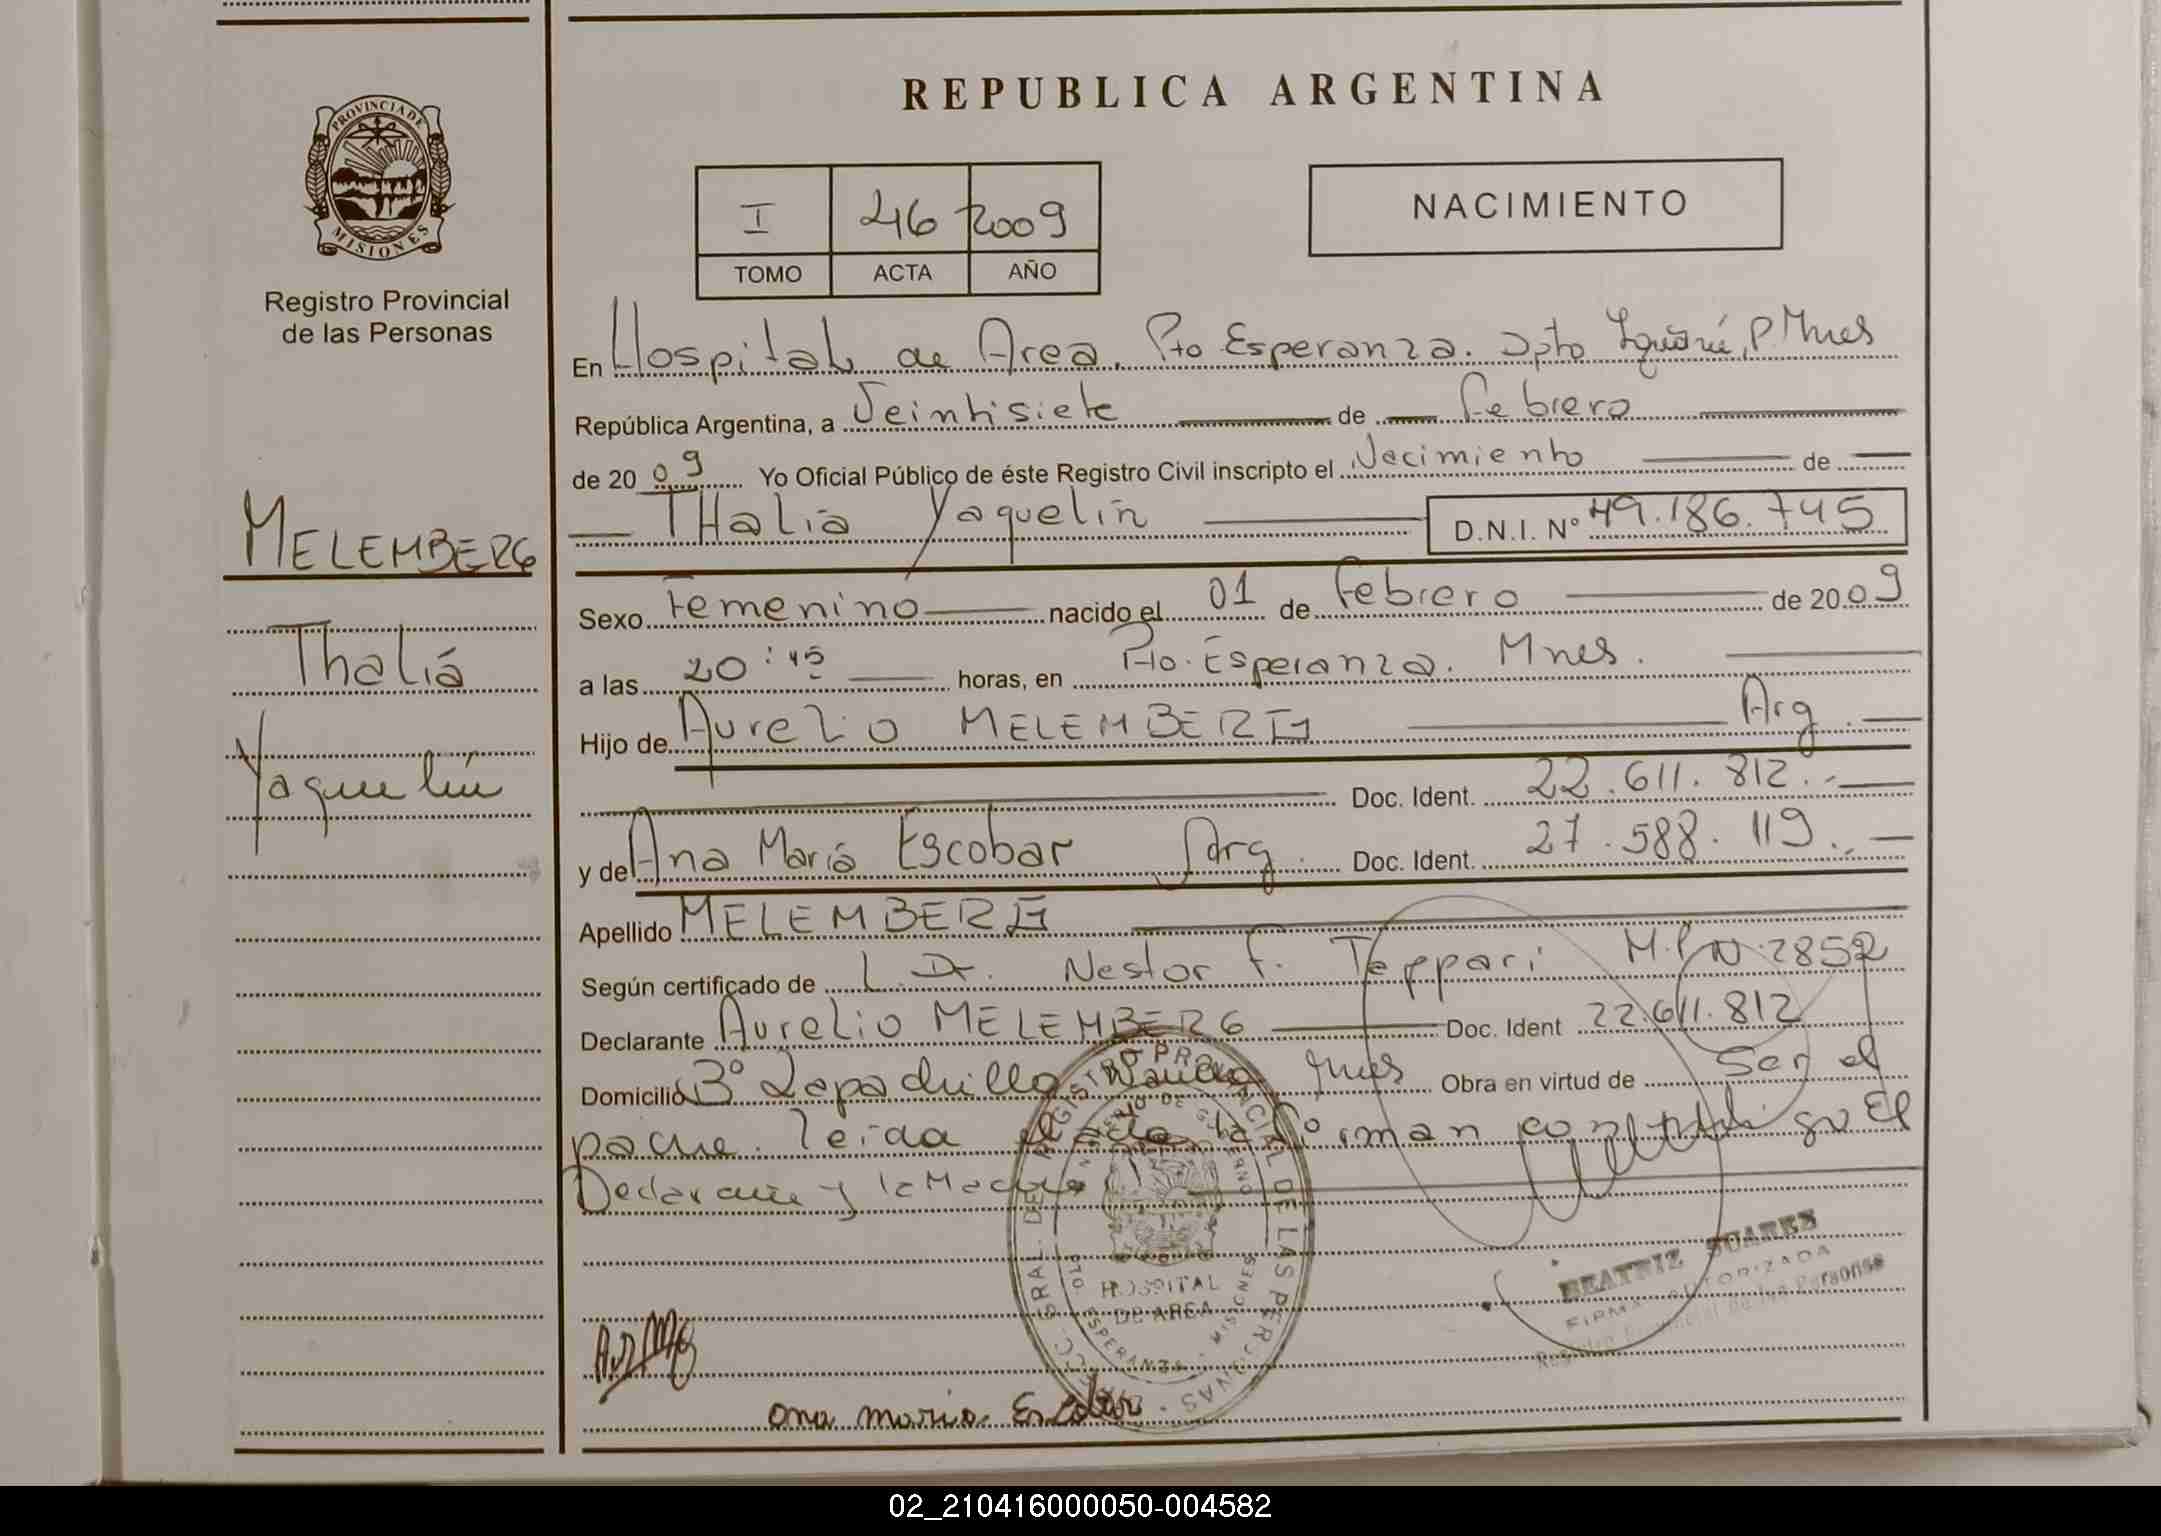 REPUBLICA ARGENTINA
PROVINCIA DE
MISIONES
Registro Provincial
de las Personas
I 46 2009
TOMO ACTA AÑO
NACIMIENTO
En Hospital de Area, Pto Esperanza. Dpto Iguazú, P Mnes
República Argentina, a Veintisiete de Febrero
de 2009 Yo Oficial Público de éste Registro Civil inscripto el Nacimiento de
THalia Yaquelin D.N.I. Nº 49.186.745
MELEMBERG
Thalia
Yaquelin
Sexo Femenino nacido el 01 de Febrero de 2009
a las 20:45 horas, en Pto. Esperanza. Mnes.
Hijo de Aurelio MELEMBERG Arg.
Doc. Ident. 22.611.812.-
y de Ana María Escobar Arg. Doc. Ident. 27.588.119.-
Apellido MELEMBERG
Según certificado de Dr. Nestor F. Teppari M.P.N. 2852
Declarante Aurelio MELEMBERG Doc. Ident 22.611.812
Domicilio Bº Zapadrillo Wanda Mnes Obra en virtud de Ser el
padre. leida el acta la firman conmigo El
Declarante y la Madre
REGISTRO PROVINCIAL DE LAS PERSONAS
HOSPITAL
DE AREA
ESPERANZA - MISIONES
BEATRIZ SUARES
FIRMA AUTORIZADA
Registro Provincial de las Personas
ana maria Escobar
02_210416000050-004582